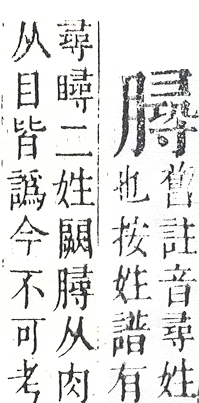 舊註音尋姓
也按姓諧有
尋二姓闕从肉
从目皆譌今不可考